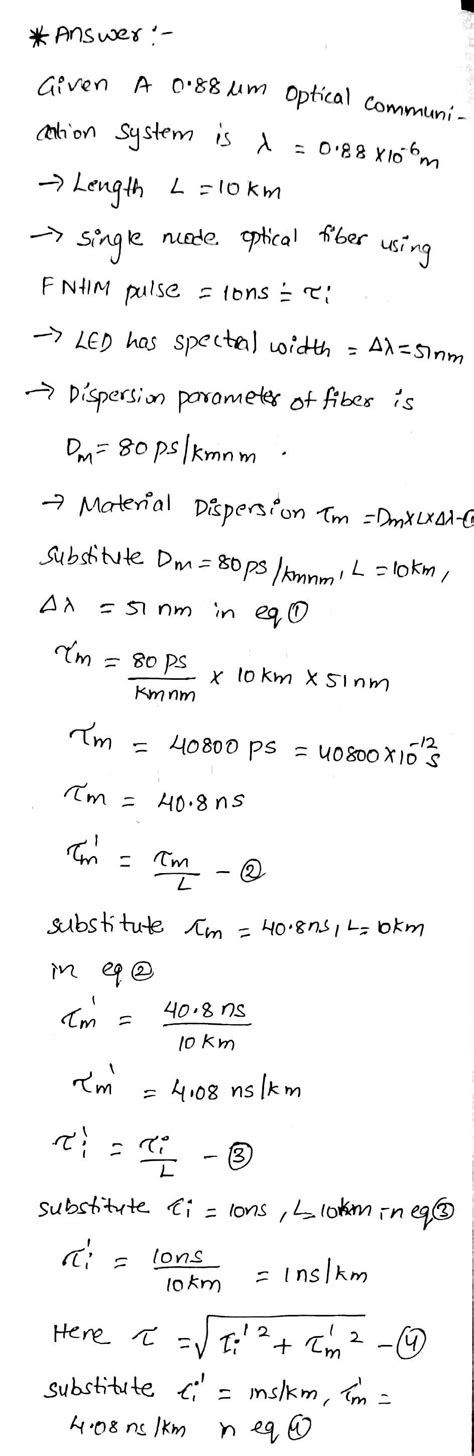 * Answer :-
Given A 0.88 μm optical communi-
cation system is λ = 0.88 ×10⁻⁶m
→ Length L = 10 km
→ single mode optical fiber using
FNHM pulse = 10ns ≐ τi
→ LED has spectral width = Δλ = 51nm
→ Dispersion parameter of fiber is
Dm = 80 ps/kmnm .
→ Material Dispersion τm = Dm×L×Δλ-①
substitute Dm = 80ps/kmnm, L = 10km,
Δλ = 51 nm in eq ①
τm = 80 ps/kmnm × 10 km × 51nm
τm = 40800 ps = 40800×10⁻¹²s
τm = 40.8 ns
τm' = τm/L - ②
substitute τm = 40.8ns, L= 10km
in eq ②
τm' = 40.8 ns/10 km
τm' = 4.08 ns/km
τi' = τi/L - ③
substitute τi = 10ns, L= 10km in eq③
τi' = 10ns/10km = 1ns/km
Here τ = √τi'² + τm'² - ④
substitute τi' = 1ns/km, τm' =
4.08 ns/km n eq ④